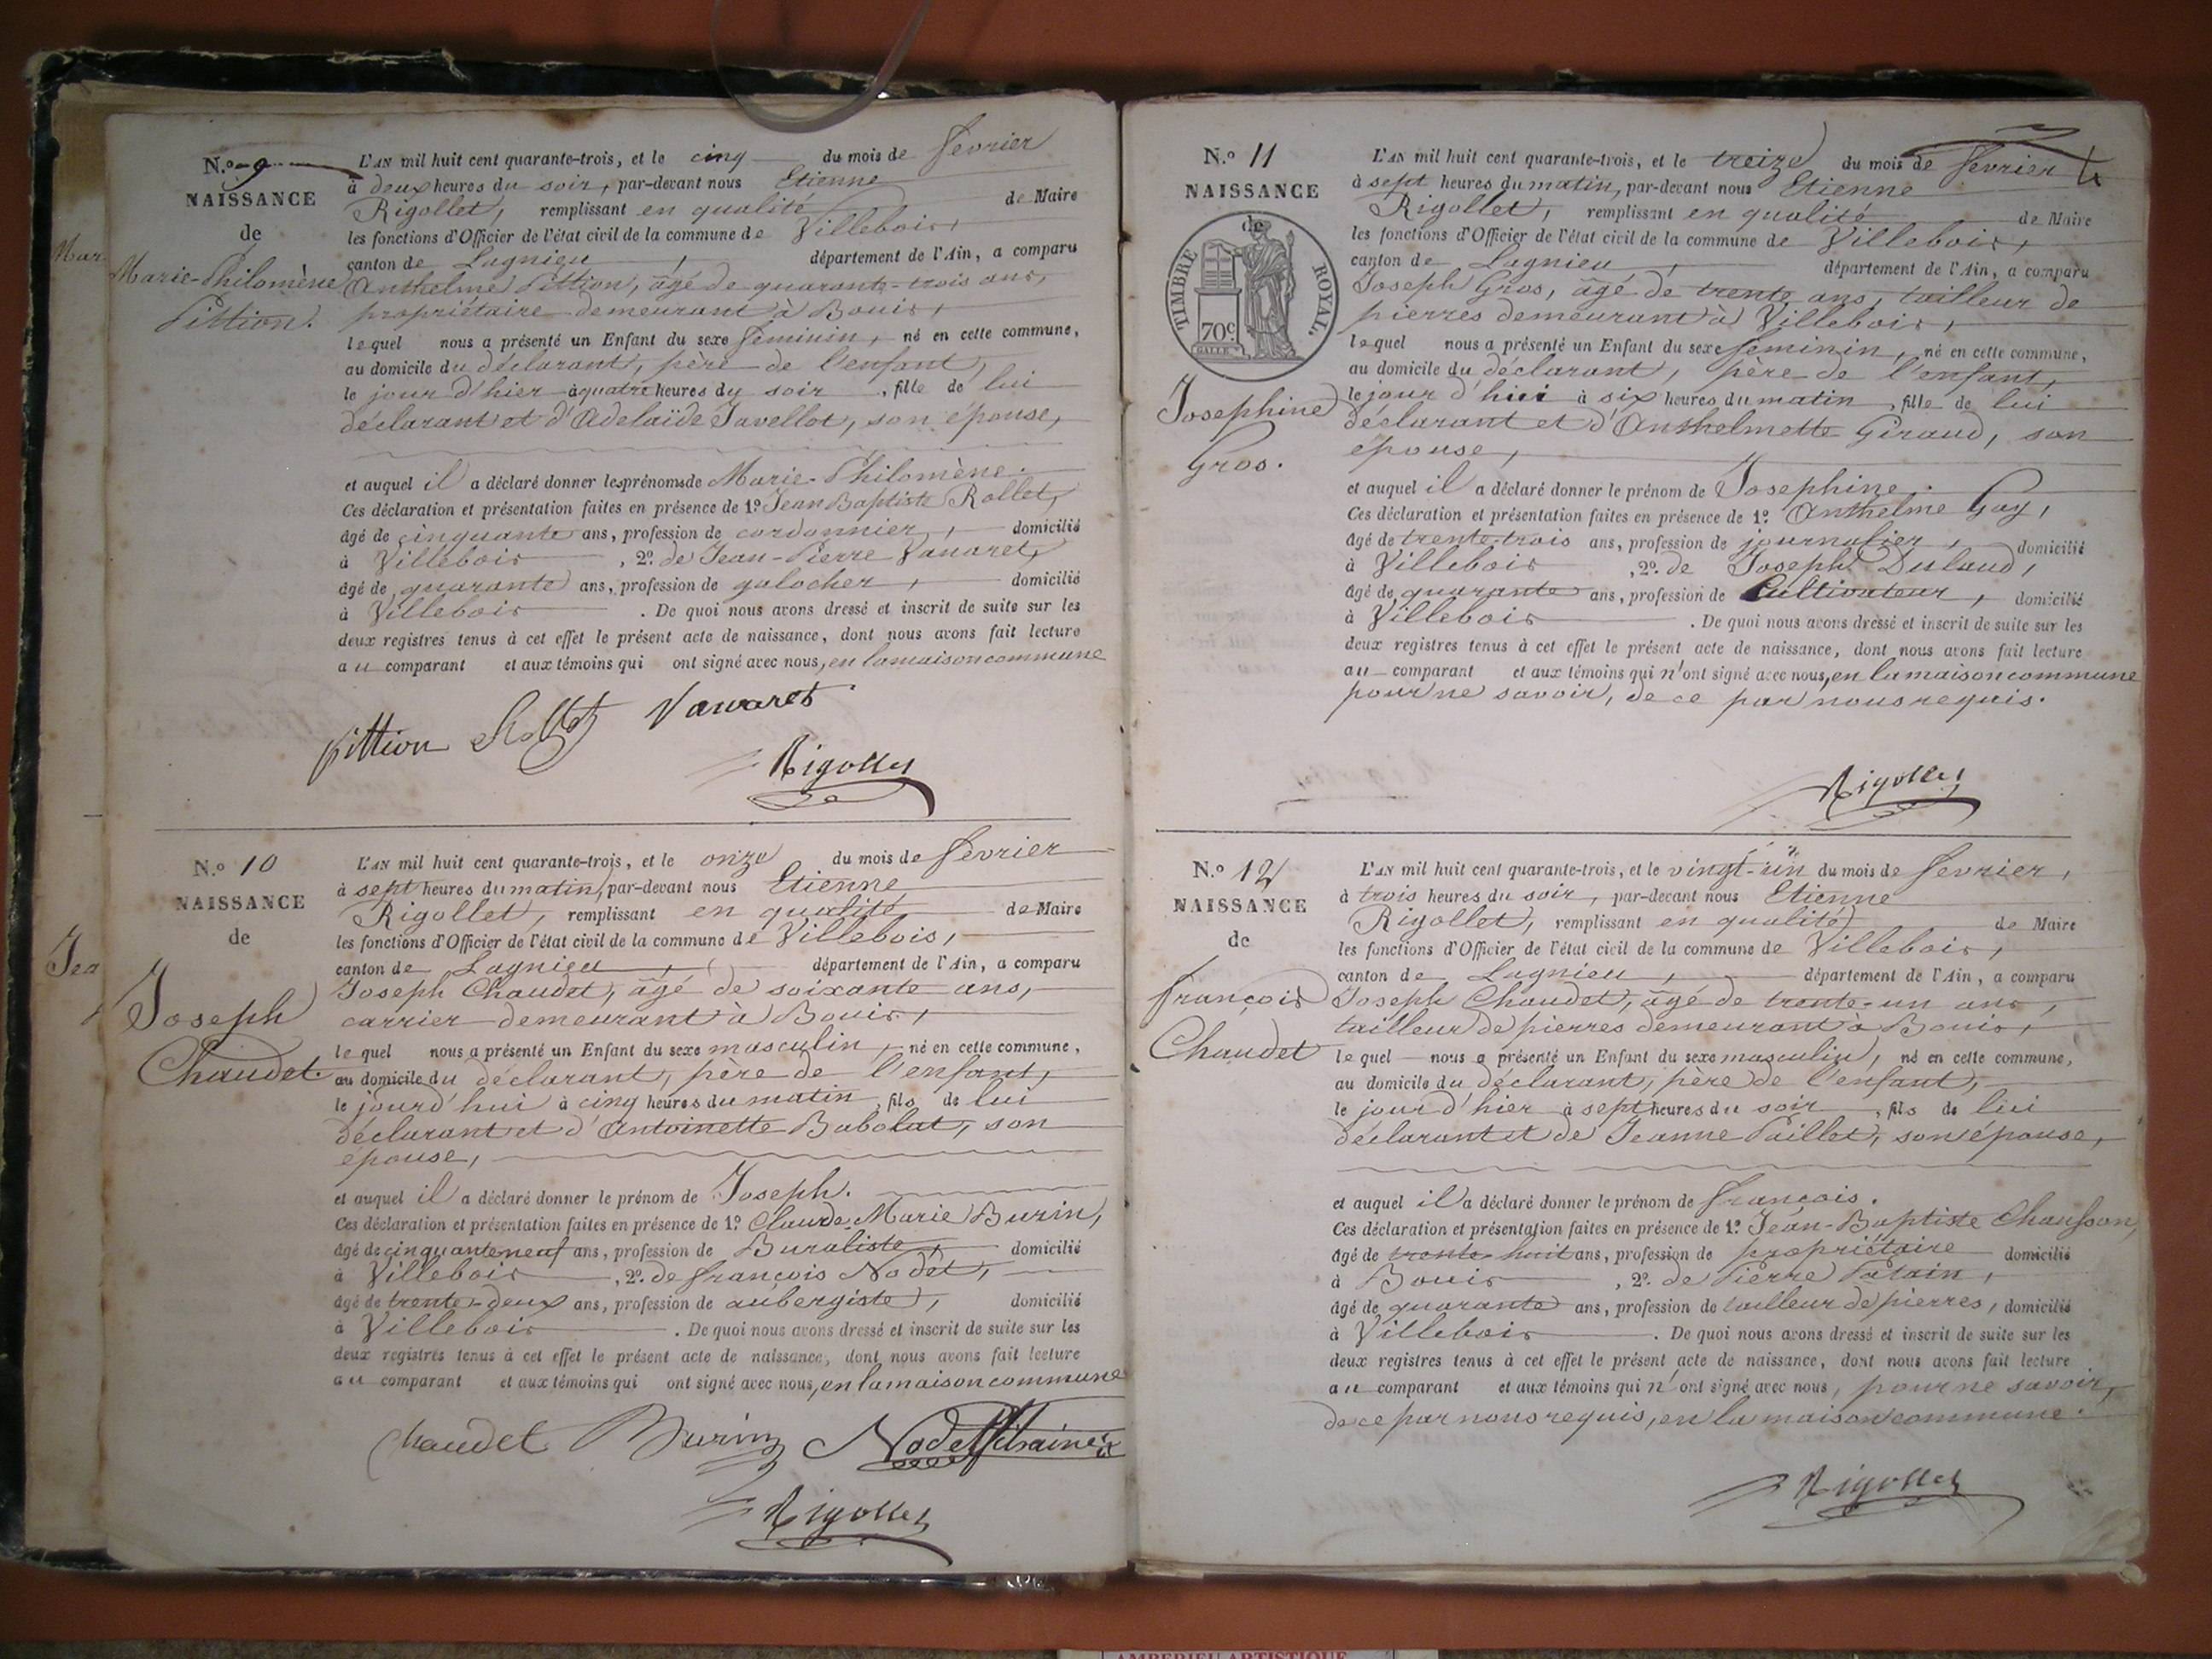 N.º 9
NAISSANCE
de
Marie-Philomène
Pittion.
L'AN mil huit cent quarante-trois, et le cinq du mois de février
à deux heures du soir, par-devant nous Etienne
Rigollet, remplissant en qualité de Maire
les fonctions d'Officier de l'état civil de la commune de Villebois,
canton de Lagnieu, département de l'Ain, a comparu
Anthelme Pittion, âgé de quarante-trois ans,
propriétaire demeurant à Bouis,
lequel nous a présenté un Enfant du sexe féminin, né en cette commune,
au domicile du déclarant, père de l'enfant,
le jour d'hier à quatre heures du soir, fille de lui
déclarant et d'Adelaïde Javellot, son épouse,
et auquel il a déclaré donner les prénoms de Marie-Philomène.
Ces déclaration et présentation faites en présence de 1º Jean Baptiste Rollet,
âgé de cinquante ans, profession de cordonnier, domicilié
à Villebois, 2º de Jean-Pierre Vanaret,
âgé de quarante ans, profession de galocher, domicilié
à Villebois. De quoi nous avons dressé et inscrit de suite sur les
deux registres tenus à cet effet le présent acte de naissance, dont nous avons fait lecture
au comparant et aux témoins qui ont signé avec nous, en la maison commune
pittion Rollet Vanaret
Rigollet
N.º 10
NAISSANCE
de
Joseph
Chaudet.
L'AN mil huit cent quarante-trois, et le onze du mois de février
à sept heures du matin, par-devant nous Etienne
Rigollet, remplissant en qualité de Maire
les fonctions d'Officier de l'état civil de la commune de Villebois,
canton de Lagnieu, département de l'Ain, a comparu
Joseph Chaudet, âgé de soixante ans,
carrier demeurant à Bouis,
lequel nous a présenté un Enfant du sexe masculin, né en cette commune,
au domicile du déclarant, père de l'enfant,
le jourd'hui à cinq heures du matin, fils de lui
déclarant et d'Antoinette Babolat, son
épouse,
et auquel il a déclaré donner le prénom de Joseph.
Ces déclaration et présentation faites en présence de 1º Claude-Marie Burin,
âgé de cinquante neuf ans, profession de Buraliste, domicilié
à Villebois, 2º de françois Nodet,
âgé de trente-deux ans, profession de aubergiste, domicilié
à Villebois. De quoi nous avons dressé et inscrit de suite sur les
deux registres tenus à cet effet le présent acte de naissance, dont nous avons fait lecture
au comparant et aux témoins qui ont signé avec nous, en la maison commune
Chaudet Burin Nodet
Rigollet
N.º 11
NAISSANCE
de
TIMBRE ROYAL.
70c.
Josephine
Gros.
L'AN mil huit cent quarante-trois, et le treize du mois de février
à sept heures du matin, par-devant nous Etienne
Rigollet, remplissant en qualité de Maire
les fonctions d'Officier de l'état civil de la commune de Villebois,
canton de Lagnieu, département de l'Ain, a comparu
Joseph Gros, âgé de trente ans, tailleur de
pierres demeurant à Villebois,
lequel nous a présenté un Enfant du sexe féminin, né en cette commune,
au domicile du déclarant, père de l'enfant,
le jour d'hui à six heures du matin, fille de lui
déclarant et d'Anthelmette Giraud, son
épouse,
et auquel il a déclaré donner le prénom de Josephine.
Ces déclaration et présentation faites en présence de 1º Anthelme Guy,
âgé de trente-trois ans, profession de journalier, domicilié
à Villebois, 2º de Joseph Dulaud,
âgé de quarante ans, profession de Cultivateur, domicilié
à Villebois. De quoi nous avons dressé et inscrit de suite sur les
deux registres tenus à cet effet le présent acte de naissance, dont nous avons fait lecture
au comparant et aux témoins qui n'ont signé avec nous, en la maison commune
pour ne savoir, de ce par nous requis.
Rigollet
N.º 12
NAISSANCE
de
françois
Chaudet
L'AN mil huit cent quarante-trois, et le vingt-un du mois de février,
à trois heures du soir, par-devant nous Etienne
Rigollet, remplissant en qualité de Maire
les fonctions d'Officier de l'état civil de la commune de Villebois,
canton de Lagnieu, département de l'Ain, a comparu
Joseph Chaudet, âgé de trente-un ans,
tailleur de pierres demeurant à Bouis,
lequel nous a présenté un Enfant du sexe masculin, né en cette commune,
au domicile du déclarant, père de l'enfant,
le jour d'hier à sept heures du soir, fils de lui
déclarant et de Jeanne Paillet, son épouse,
et auquel il a déclaré donner le prénom de françois.
Ces déclaration et présentation faites en présence de 1º Jean-Baptiste Chausson,
âgé de trente-huit ans, profession de propriétaire domicilié
à Bouis, 2º de Pierre Patain,
âgé de quarante ans, profession de tailleur de pierres, domicilié
à Villebois. De quoi nous avons dressé et inscrit de suite sur les
deux registres tenus à cet effet le présent acte de naissance, dont nous avons fait lecture
au comparant et aux témoins qui n'ont signé avec nous, pour ne savoir,
de ce par nous requis, en la maison commune.
Rigollet
AMBERIEU ARTISTIQUE